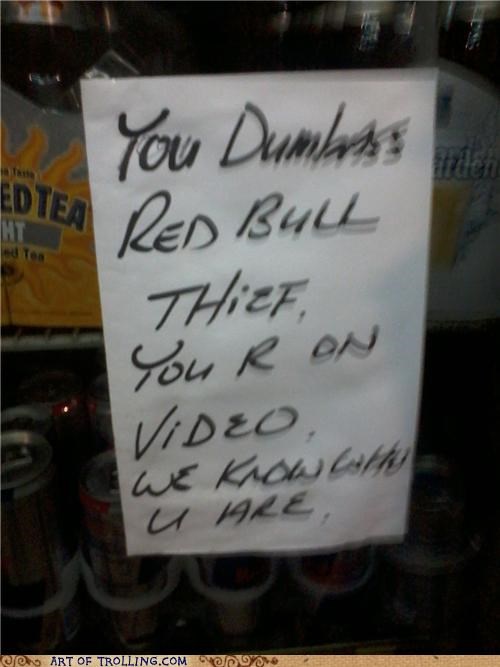 You Dumbass
RED BULL
THiEF,
You R ON
ViDEO,
WE KNOW WHO
U ARE,
ED TEA
HT
ed Tea
ART OF TROLLING.COM